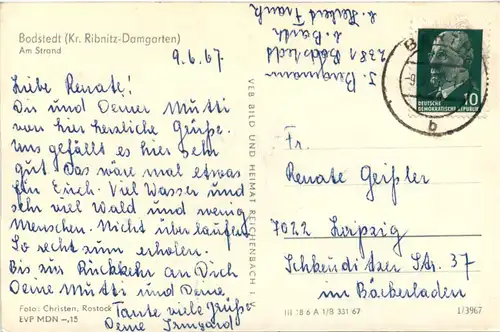 Bodstedt (Kr. Ribnitz-Damgarten)
Am Strand
9.6.67.
Liebe Renate!
Dir und Deiner Mutti
von hier herzliche Grüße.
Uns gefällt es hier sehr
gut. Das wäre mal etwas
für Euch. Viel Wasser und
sehr viel Wald und wenig
Menschen. Nicht überlaufen.
So recht zum erholen.
Bis zur Rückkehr an Dich
Deine Mutti und Deine
Tante viele Grüße
Deine Irmgard
Foto: Christen, Rostock
EVP MDN —,15
VEB BILD UND HEIMAT REICHENBACH I. V.
I. Bergmann
2381 Bodstedt
b. Barth
b. Herbert Frank
DEUTSCHE
DEMOKRATISCHE REPUBLIK
10
b
Fr.
Renate Geißler
7022 Leipzig
Schkeuditzer Str. 37
im Bäckerladen
III 18 6 A 1/B 331 67
1/3967